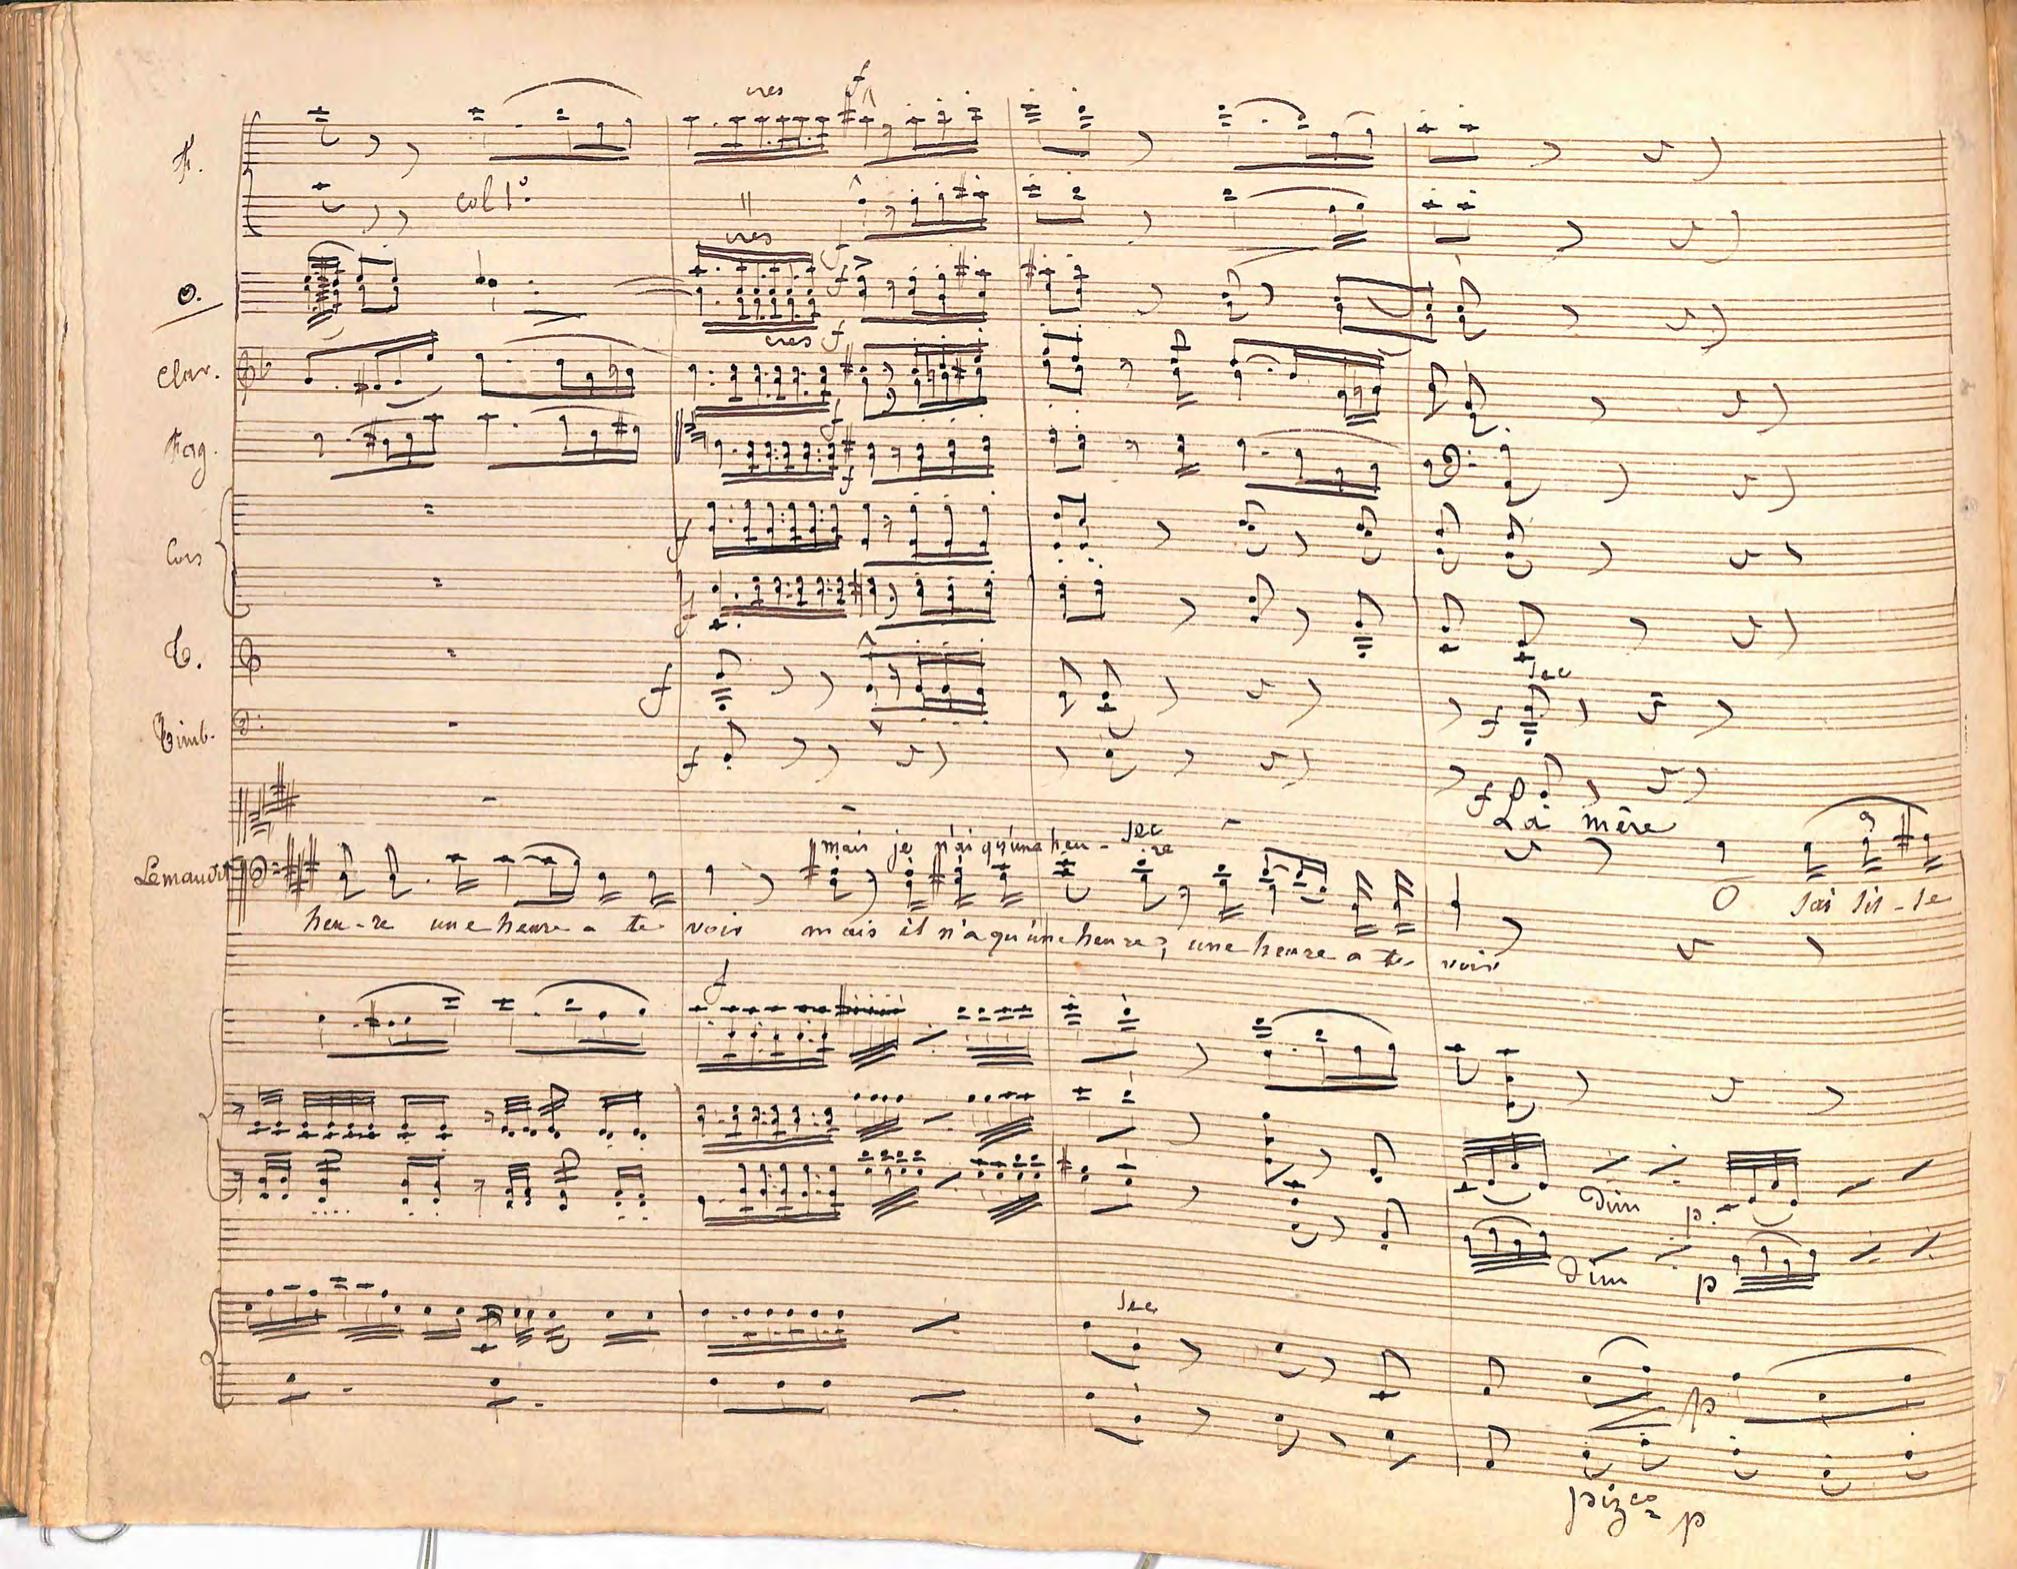 cres f
F.
col 1º
cres f
O.
cres f
Clar.
f
Fag.
f
Cors
f
f
C.
f
sec
f
Timb.
f
f
La mère
mais je n'ai qu'une heu - re
sec
Le maudit
O
heu-re une heure a te voir mais il n'a qu'une heure, une heure a te voir
f
dim p.
dim p
sec
p
pizco p